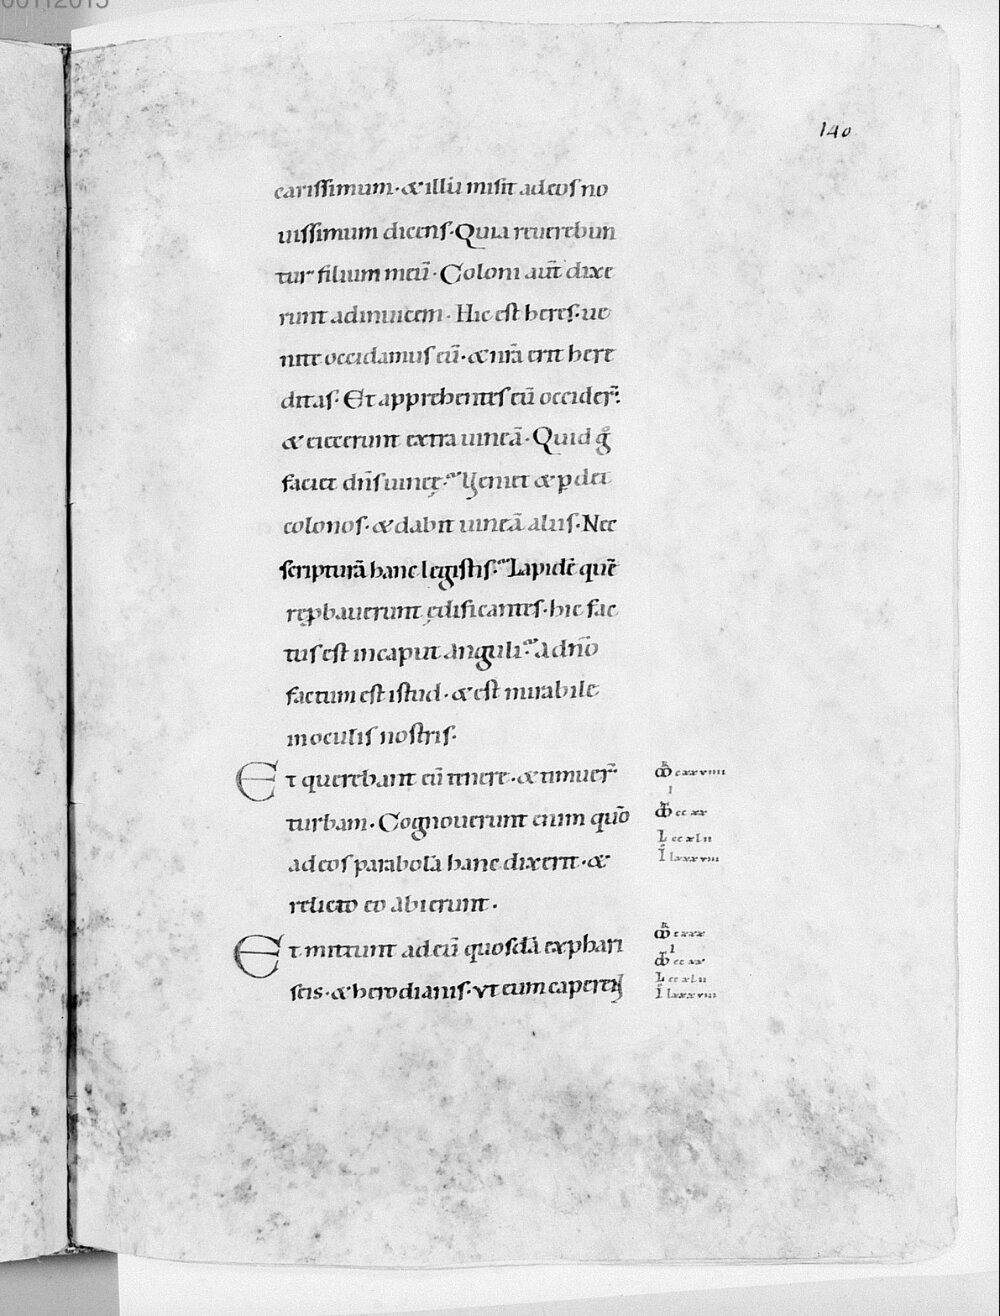 140
carissimum · & illū misit ad eos no
uissimum dicens · Quia reuerebun
tur filium meū · Coloni aut̄ dixe
runt ad inuicem · Hic est heres · ue
nite occidamus eū · & nr̄a erit here
ditas · Et apprehentes eū occider̄ ·
& eiecerunt extra uineā · Quid g̊
faciet dn̄s uineę · Veniet & ꝑdet
colonos · & dabit uineā aliis · Nec
scripturā hanc legistis · Lapidē quē
reꝓbauerunt ędificantes · hic fac
tus est in caput anguli · a dn̄o
factum est istud · & est mirabile
in oculis nostris ·
Et querebant eū tenere · & timuer̄
turbam · Cognouerunt enim quō
ad eos parabolā hanc dixerit · &
relicto eo abierunt ·
Et mittunt ad eū quosdā ex phari
seis · & herodianis · vt eum caperent
cxxviiii
i
cc xx
L ccxlii
I lxxxviii
cxxx
i
cc xx
L ccxlii
I lxxxviii